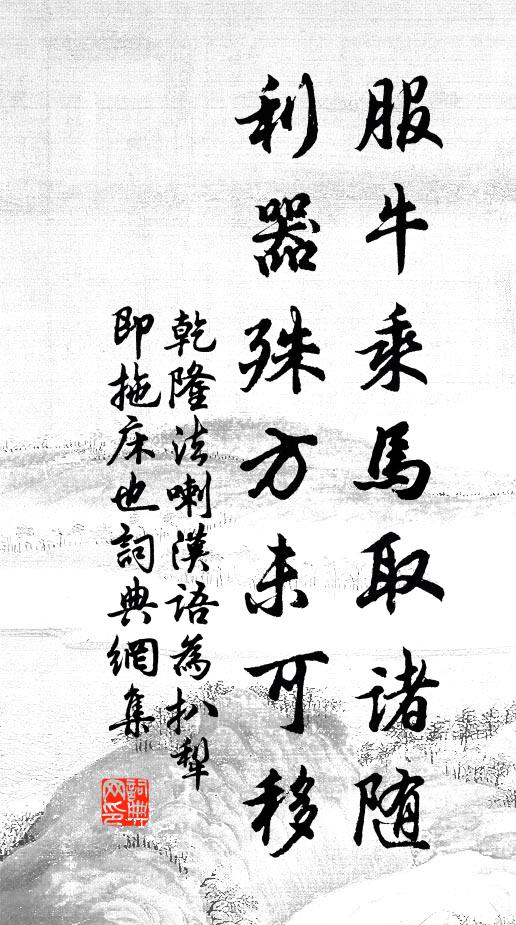 服牛乘馬取諸随
利器殊方未可移
乾隆法喇漢語為扒犁
即拖床也詞典網集
詞典網印